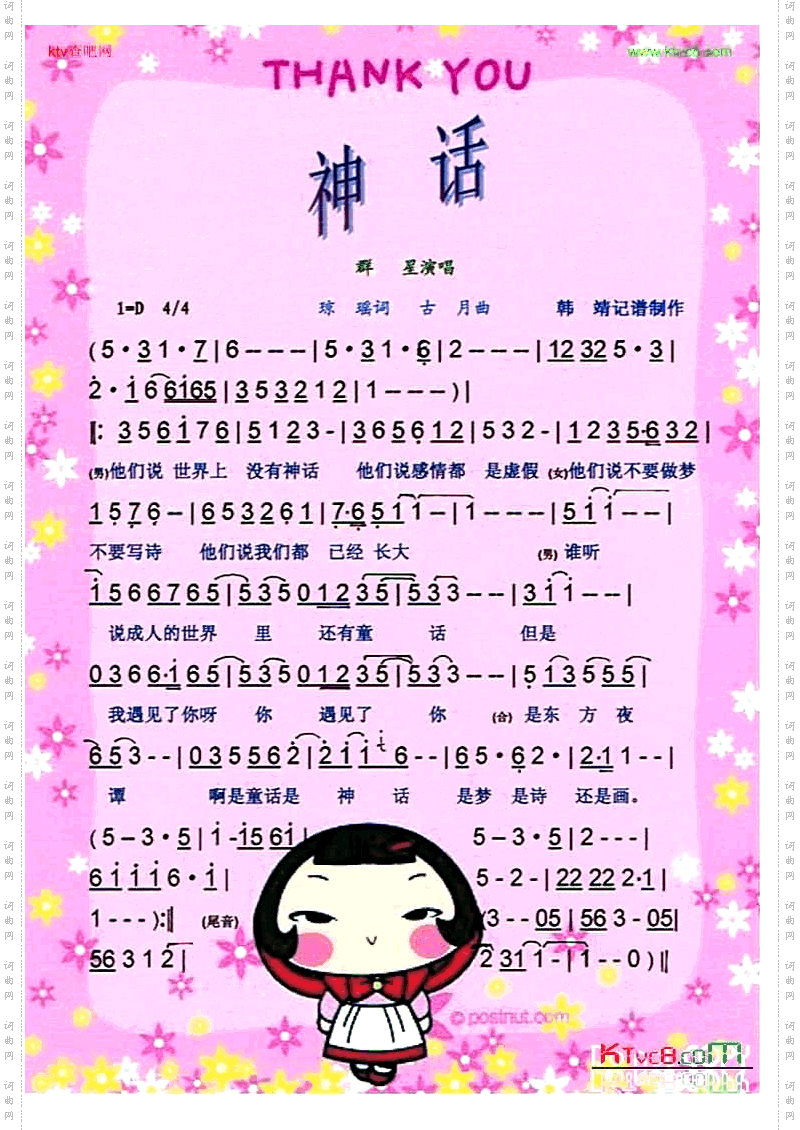 ktv客吧网 www.ktvc8.com
THANK YOU
神 话
群 星演唱
1=D 4/4 琼 瑶词 古 月曲 韩 靖记谱制作
(5·3 1·7|6---|5·31·6|2---|12 32 5·3|
2·i 6 6i65|3 5 3 2 1 2|1---)|
‖: 3 5 6 i 7 6|5 1 2 3-|3 6 5 6 1 2|5 3 2-|1 2 3 5·6 3 2|
(男)他们说 世界上 没有神话 他们说感情都 是虚假 (女)他们说不要做梦
1 5 7 6-|6 5 3 2 6 1|7·6 5 i i-|i---|5 i i--|
不要写诗 他们说我们都 已经 长大 (男) 谁听
i 5 6 6 7 6 5|5 3 5 0 1 2 3 5|5 3 3--|3 i i--|
说成人的世界 里 还有童 话 但是
0 3 6 6·i 6 5|5 3 5 0 1 2 3 5|5 3 3--|5 1 3 5 5 5|
我遇见了你呀 你 遇见了 你 (合) 是东 方 夜
6 5 3--|0 3 5 5 6 2|2 i i i 6--|6 5·6 2·|2·1 1--|
谭 啊是童话是 神 话 是梦 是诗 还是画。
(5-3·5|i-i5 6i| 5-3·5|2---|
6 i i i 6·i| 5-2-|22 22 2·1|
1---):‖ (尾音) (3--05|56 3-05|
56 3 1 2| 2 31 1-|1--0)‖
© postnut.com
KTvc8.com